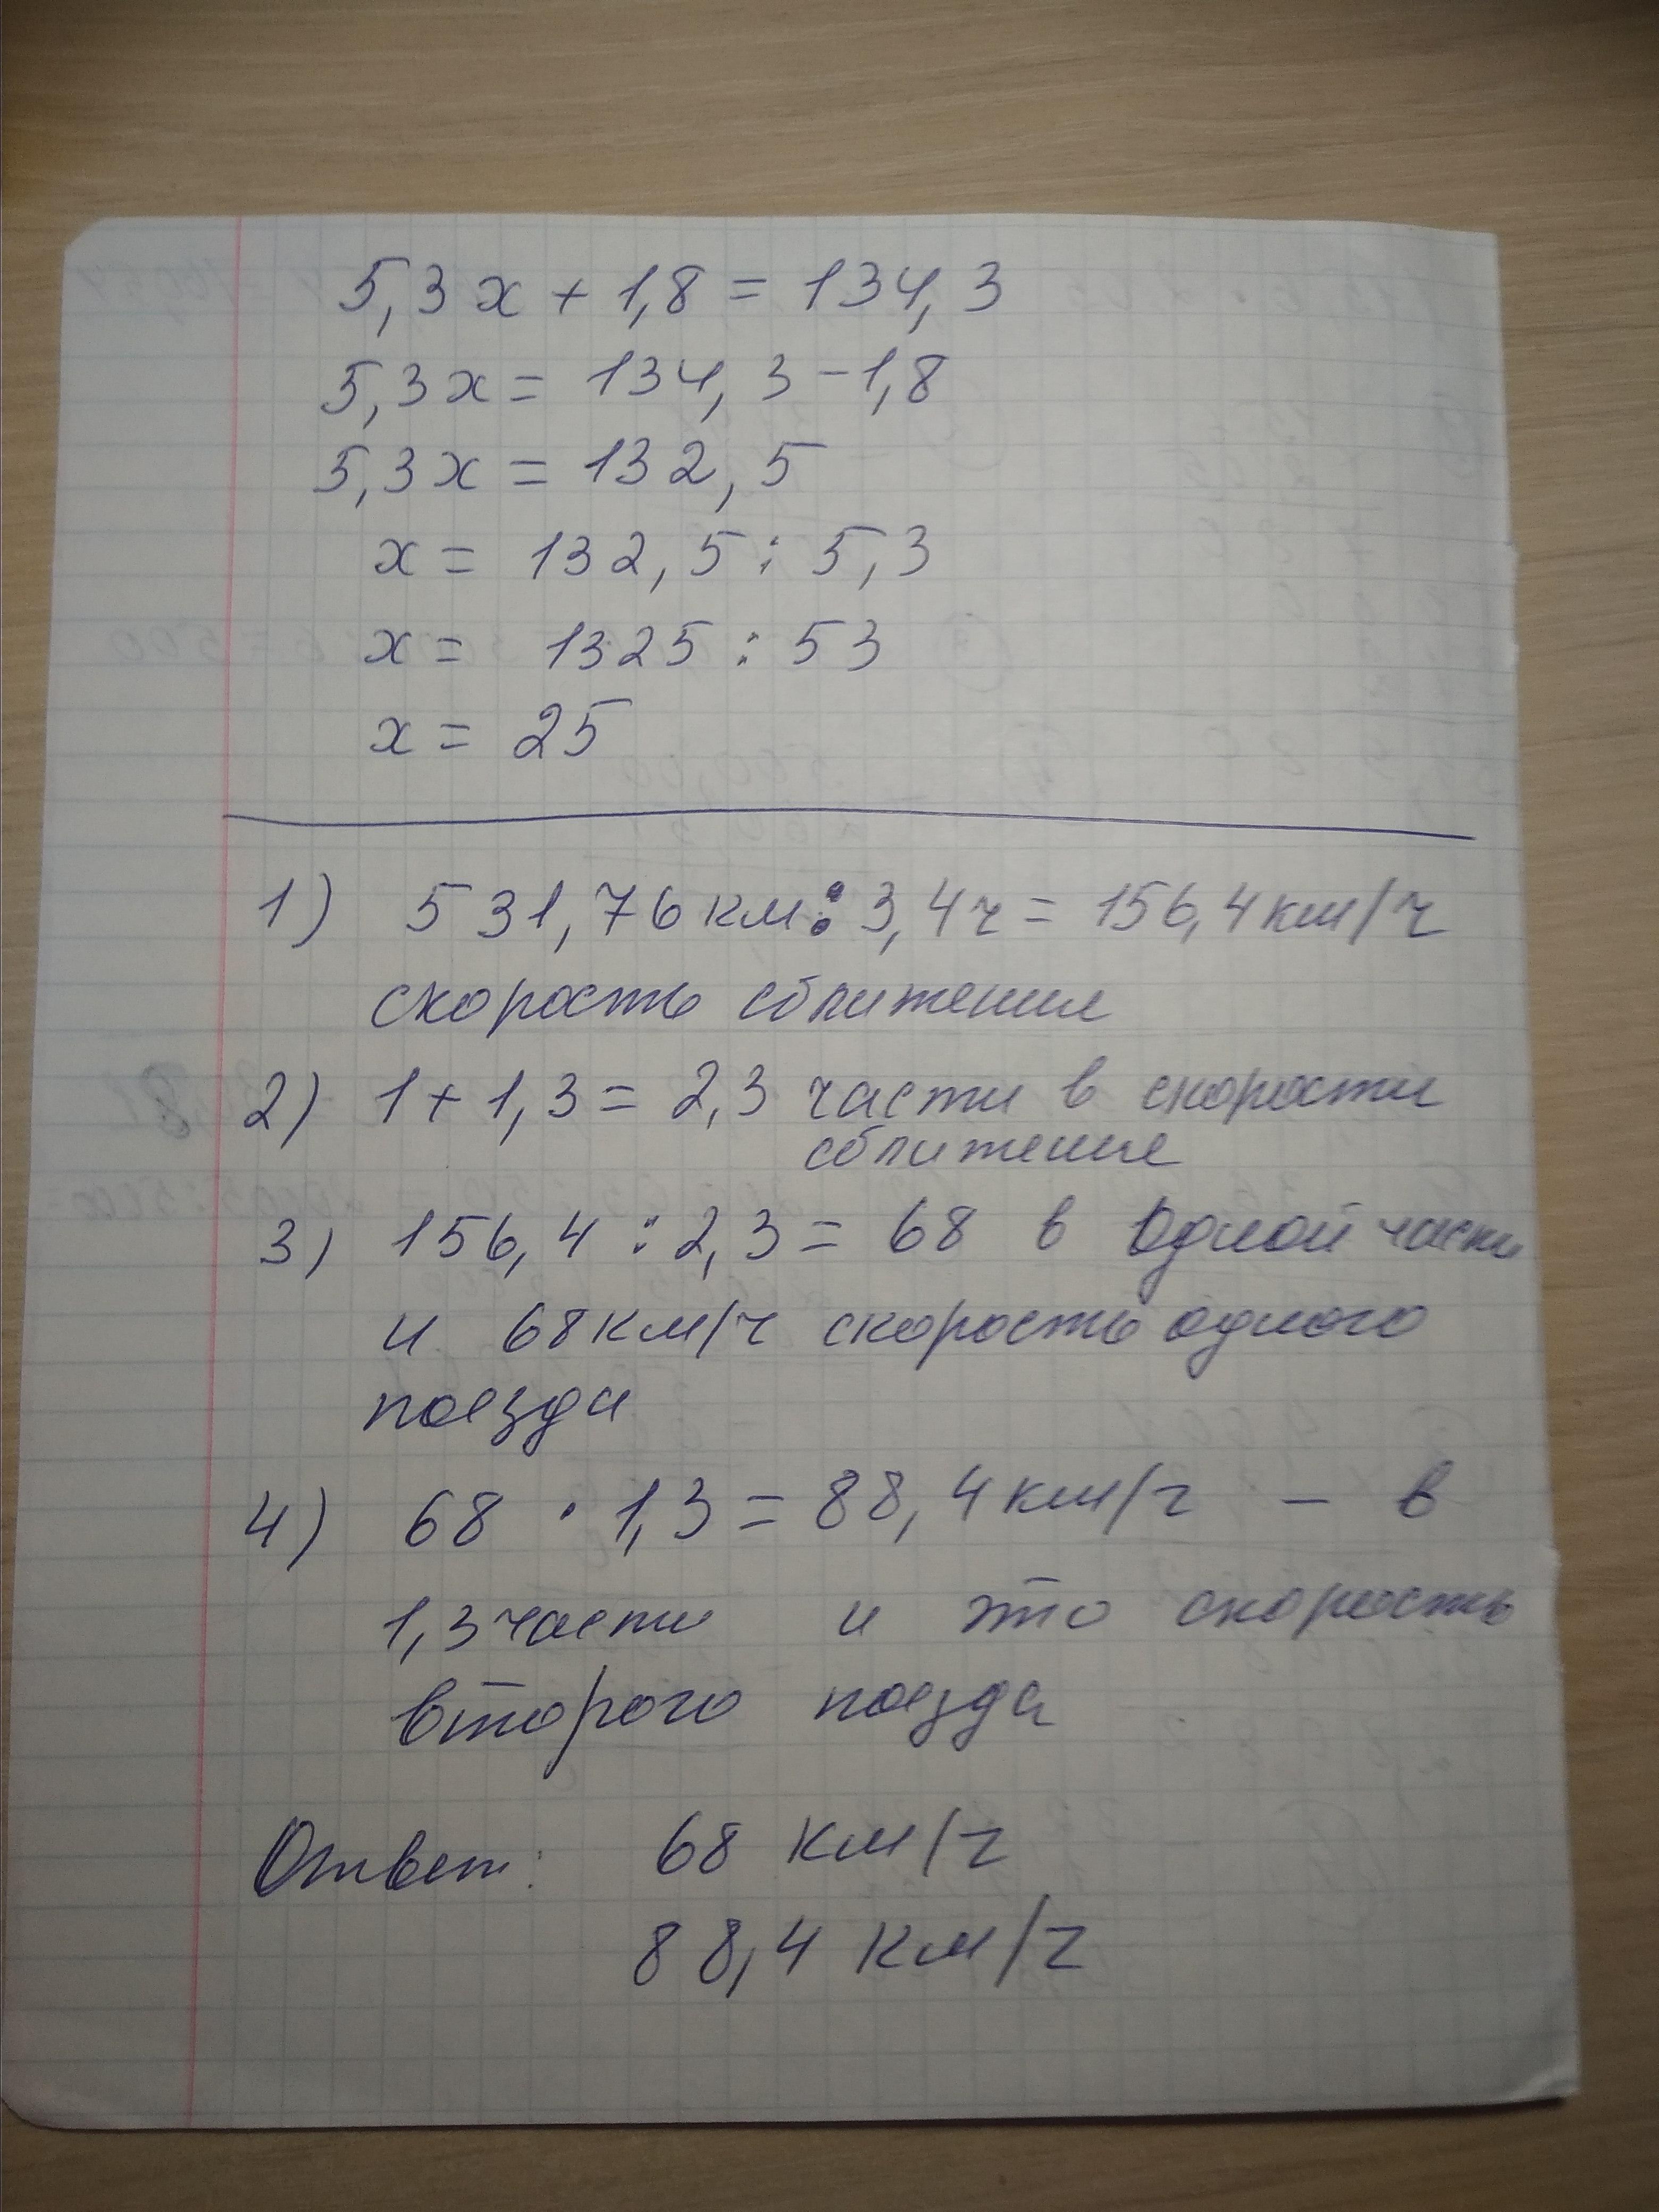 5,3x + 1,8 = 134,3
5,3x = 134,3 - 1,8
5,3x = 132,5
x = 132,5 : 5,3
x = 1325 : 53
x = 25
1) 531,76 км : 3,4ч = 156,4 км/ч
скорость сближения
2) 1 + 1,3 = 2,3 части в скорости
сближение
3) 156,4 : 2,3 = 68 в одной части
и 68 км/ч скорость одного
поезда
4) 68 · 1,3 = 88,4 км/ч - в
1,3 части и это скорость
второго поезда
Ответ: 68 км/ч
88,4 км/ч